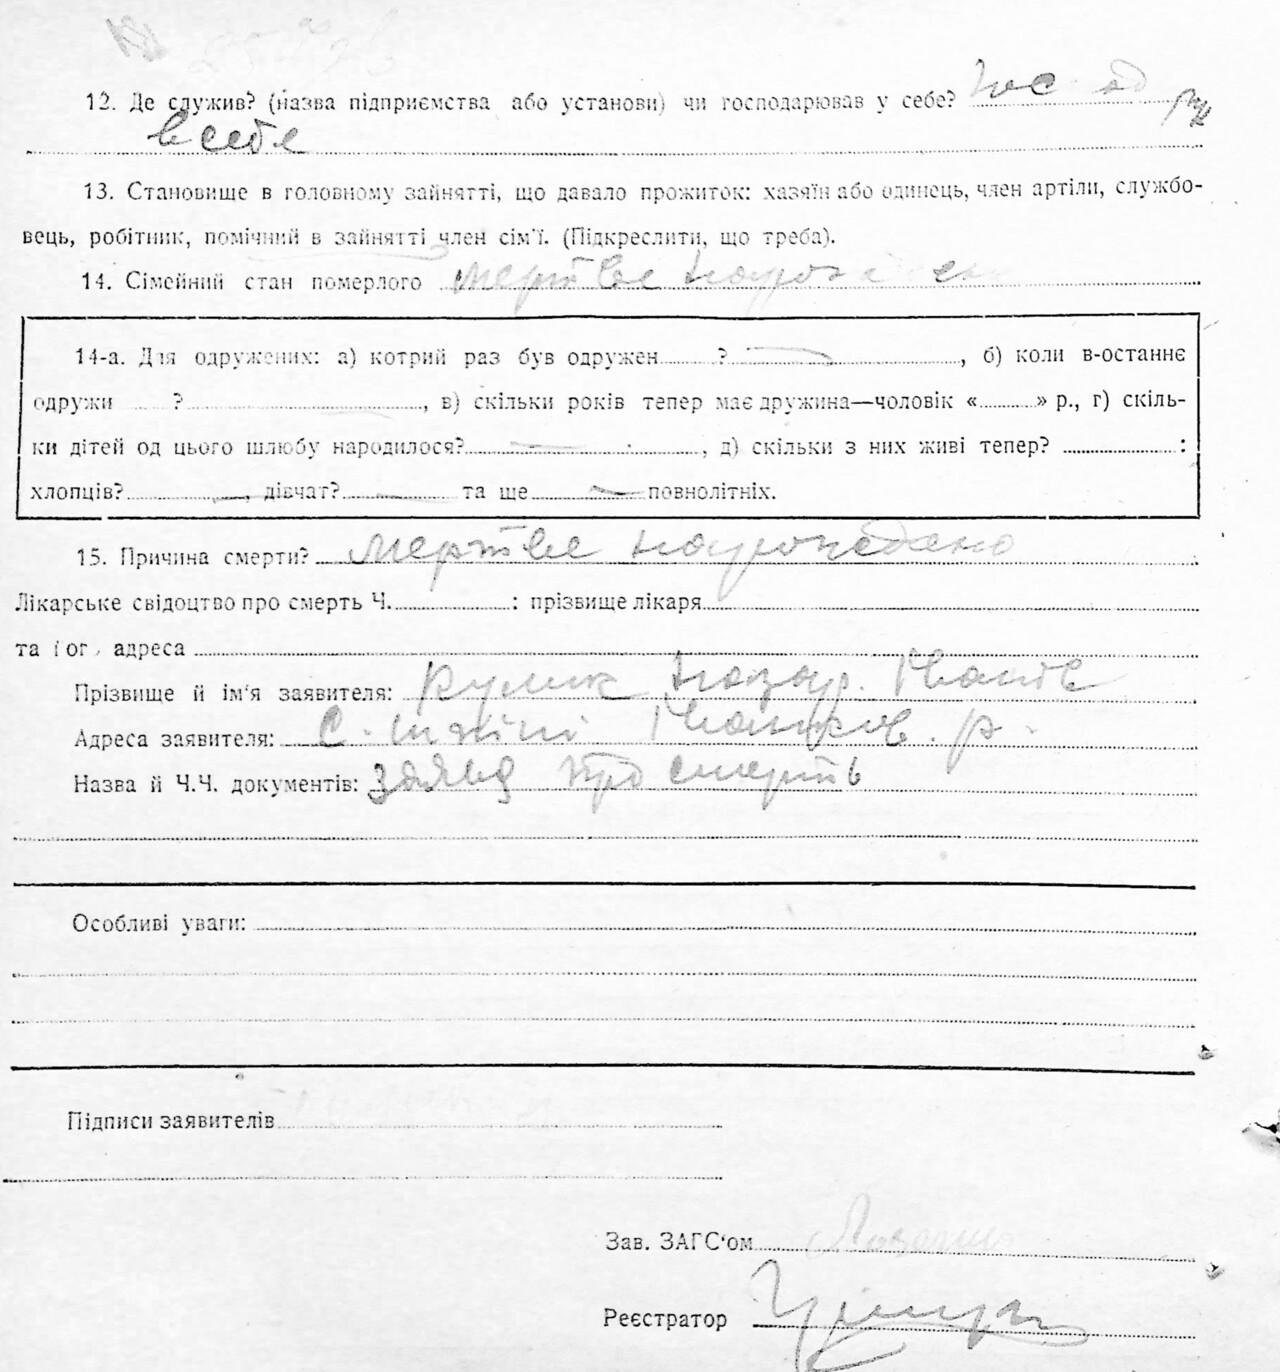 12. Де служив? (назва підприємства або установи) чи господарював у себе?
в себе
13. Становище в головному зайнятті, що давало прожиток: хазяїн або одинець, член артіли, службо-
вець, робітник, помічний в зайнятті член сім'ї. (Підкреслити, що треба).
14. Сімейний стан померлого мертве
14-а. Для одружених: а) котрий раз був одружен ? , б) коли в-останнє
одружи ? , в) скільки років тепер має дружина—чоловік « » р., г) скіль-
ки дітей од цього шлюбу народилося? , д) скільки з них живі тепер? :
хлопців? , дівчат? та ще повнолітніх.
15. Причина смерти? мертве
Лікарське свідоцтво про смерть Ч. : прізвище лікаря
та адреса
Прізвище й ім'я заявителя: Кулик Назар
Адреса заявителя: с. р.
Назва й Ч.Ч. документів: заява про смерть
Особливі уваги:
Підписи заявителів
Зав. ЗАГС'ом
Реєстратор